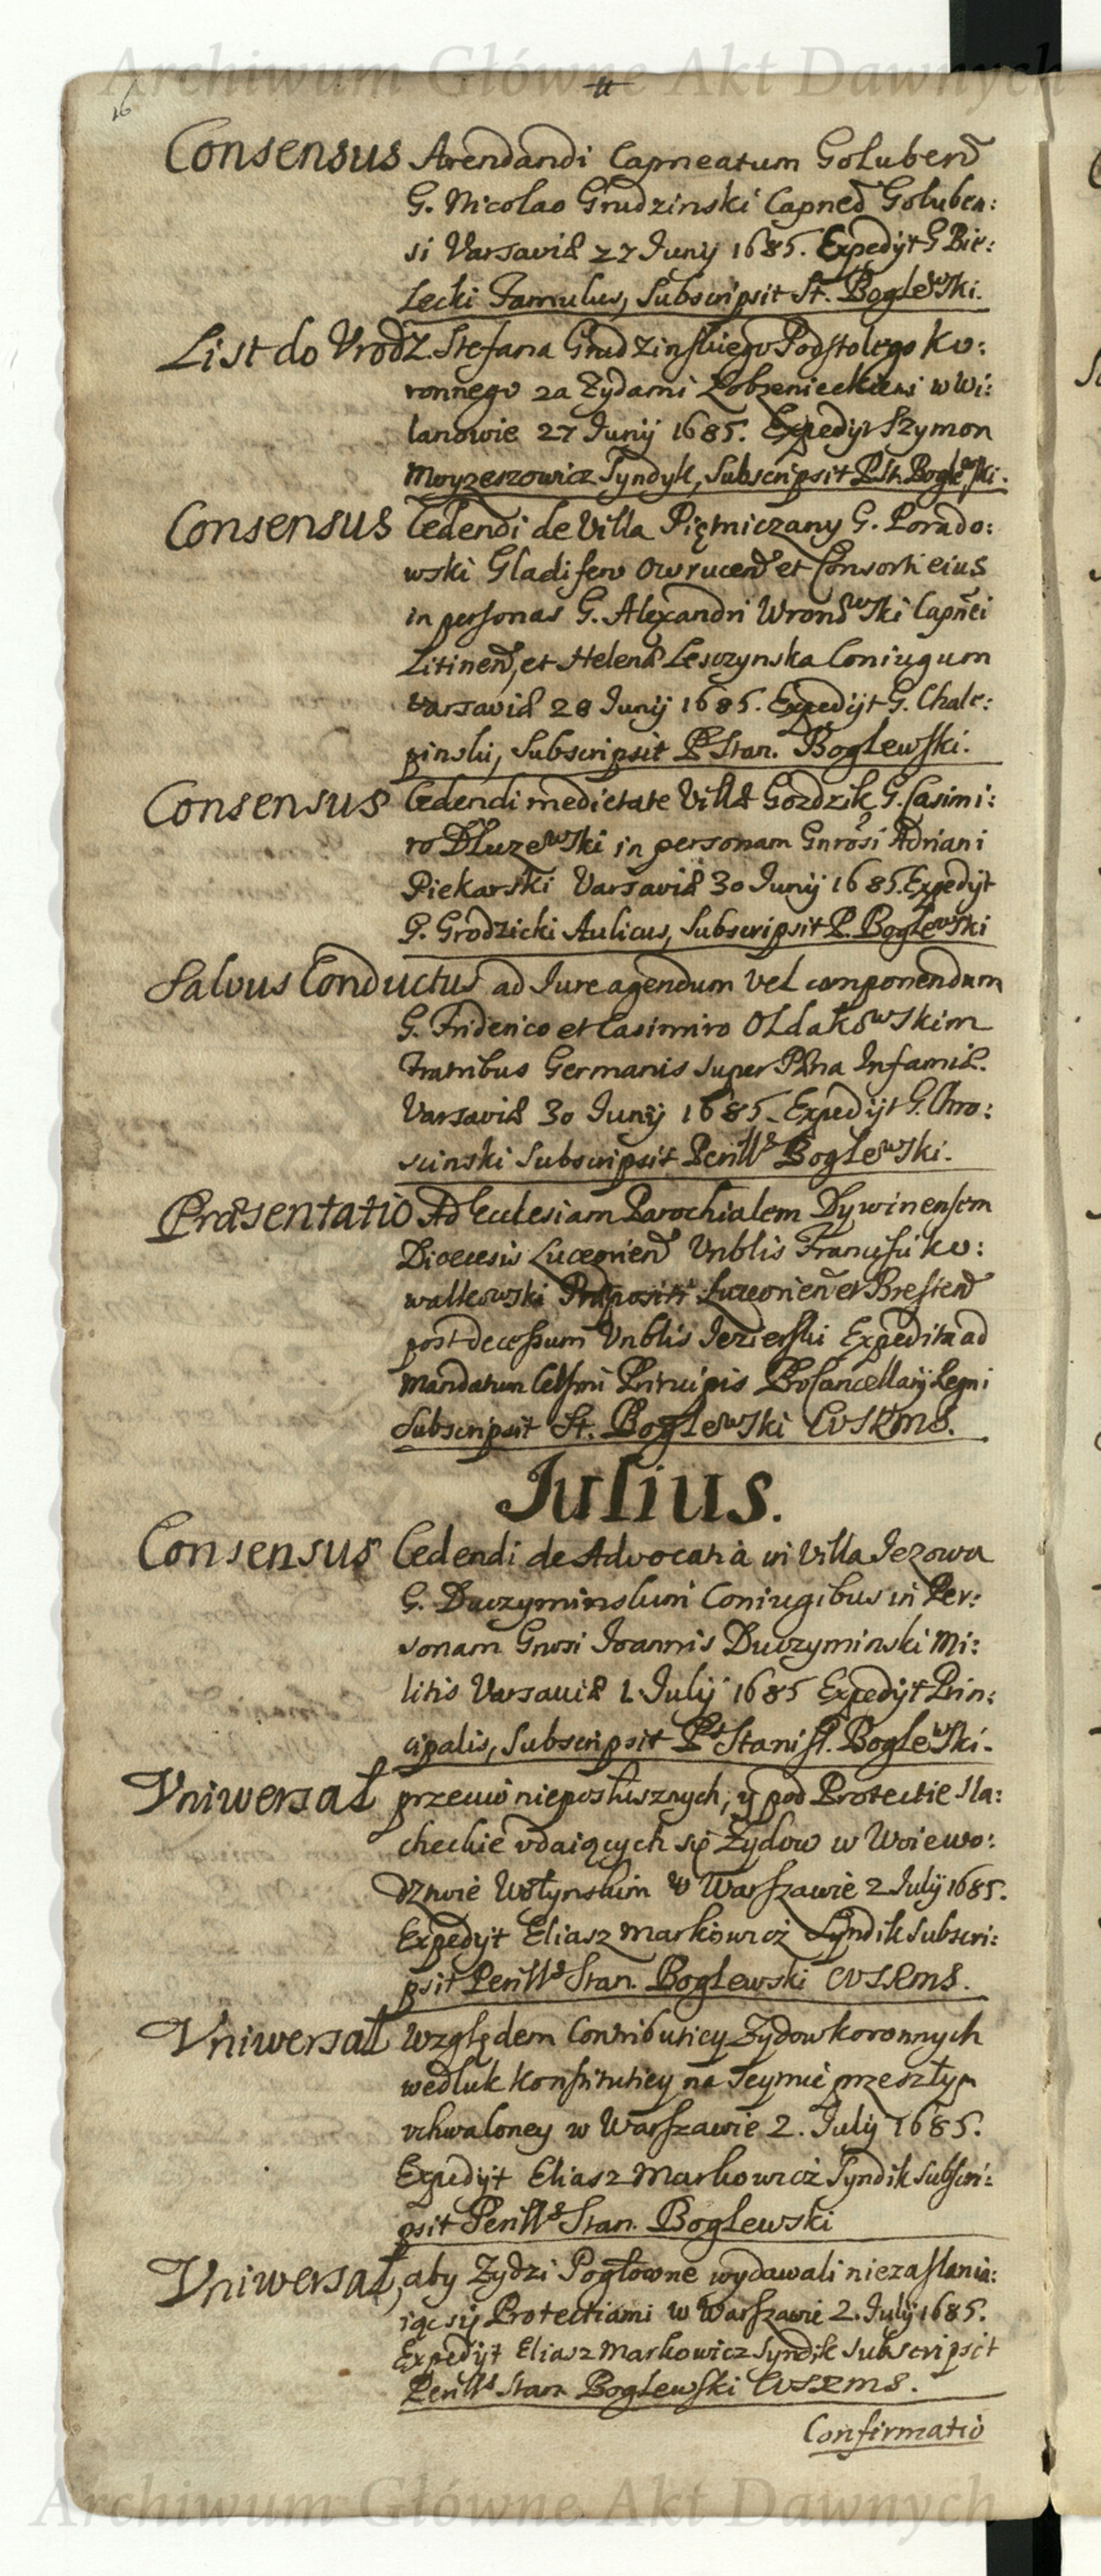 Archiwum Główne Akt Dawnych
16
Consensus Arendandi Capneatum Goluben̄
G. Nicolao Grudzinski Capneo Goluben:
si Varsaviæ 27 Junij 1685. Expedijt G Bie:
lecki Famulus, Subscripsit St. Boglewski.
List do Vrodz. Stefana Grudzinskiego Podstolego Ko:
ronnego za Zydami Lobzenieckiemi w Wi:
lanowie 27 Junij 1685. Expedijt Szymon
Moyzeszowicz Syndyk, Subscripsit P. St. Boglewski.
Consensus Cedendi de Villa Piętniczany G. Porado:
wski Gladifero Owrucen̄ et Consorti eius
in personas G. Alexandri Wronowski Capnei
Litinen̄, et Helenæ Lesczynska Coniugum
Varsaviæ 28 Junij 1685. Expedijt G. Chale:
pinski, Subscripsit P Stan. Boglewski.
Consensus Cedendi medietate Villæ Gozdzik G. Casimi:
ro Dluzewski in personam Gnrosi Adriani
Piekarski Varsaviæ 30 Junij 1685. Expedijt
G. Grodzicki Aulicus, Subscripsit P. Boglewski
Salvus Conductus ad Iure agendum vel componendum
G. Friderico et Casimiro Oldakowskim
Fratribus Germanis super Pæna Infamiæ.
Varsaviæ 30 Junij 1685. Expedijt G. Chro:
scinski Subscripsit Perill͛s Boglewski.
Præsentatio Ad Ecclesiam Parochialem Dywinensem
Diœcesis Luceorien̄ Vnblis Francisci Ko:
walkowski Præpositi Luceorien̄ et Bresten̄
post decessum Vnblis Jezierski Expedita ad
Mandatum Celsmi Principis Procancellarij Regni
Subscripsit St. Boglewski CVSRMS.
Iulius.
Consensus Cedendi de Advocatia in Villa Jezowa
G. Duczyminskim Coniugibus in Per:
sonam Gnrosi Joannis Duczyminski Mi:
litis Varsaviæ 1 July 1685 Expedijt Prin:
cipalis, Subscripsit P͛s Stanisl. Boglewski.
Vniwersał przeciwo nieposłusznych, y pod Protectie sla:
checkie vdaiących się Żydow w Woiewo:
dztwie Wołynskim w Warszawie 2 July 1685.
Expedijt Eliasz Markowicz Syndik Subscri:
psit Perill͛s Stan. Boglewski CVSRMS.
Vniwersał Względem Contributiey Zydow koronnych
wedluk Konstitutiey na Seymie przeszłym
vchwaloney w Warszawie 2. July 1685.
Expedijt Eliasz Markowicz Syndik Subscri:
psit Perill͛s Stan. Boglewski
Vniwersał, aby Zydzi Pogłowne wydawali niezaslania:
iąc sij Protectiami w Warszawie 2. July 1685.
Expedijt Eliasz Markowicz Syndik Subscripsit
Perill͛s Stan Boglewski CVSRMS.
Confirmatio
Archiwum Główne Akt Dawnych